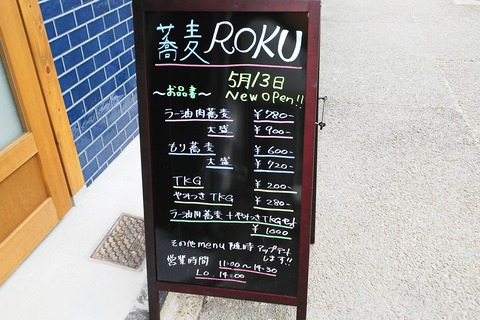 蕎麦 ROKU
5月13日
～お品書～ New Open!!
ラー油肉蕎麦 ¥780-
大盛 ¥900-
もり蕎麦 ¥600-
大盛 ¥720-
TKG ¥200-
やみつきTKG ¥280-
ラー油肉蕎麦+やみつきTKGセット
¥1000
その他menu随時アップデート
します!!
営業時間 11:00～14:30
L.O. 14:00